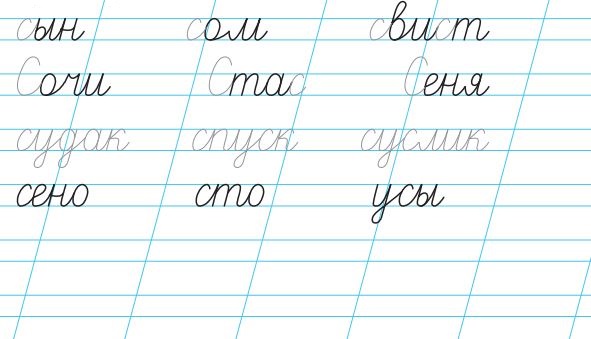 сын сом свист
Сочи Стас Сеня
судак спуск суслик
сено сто усы